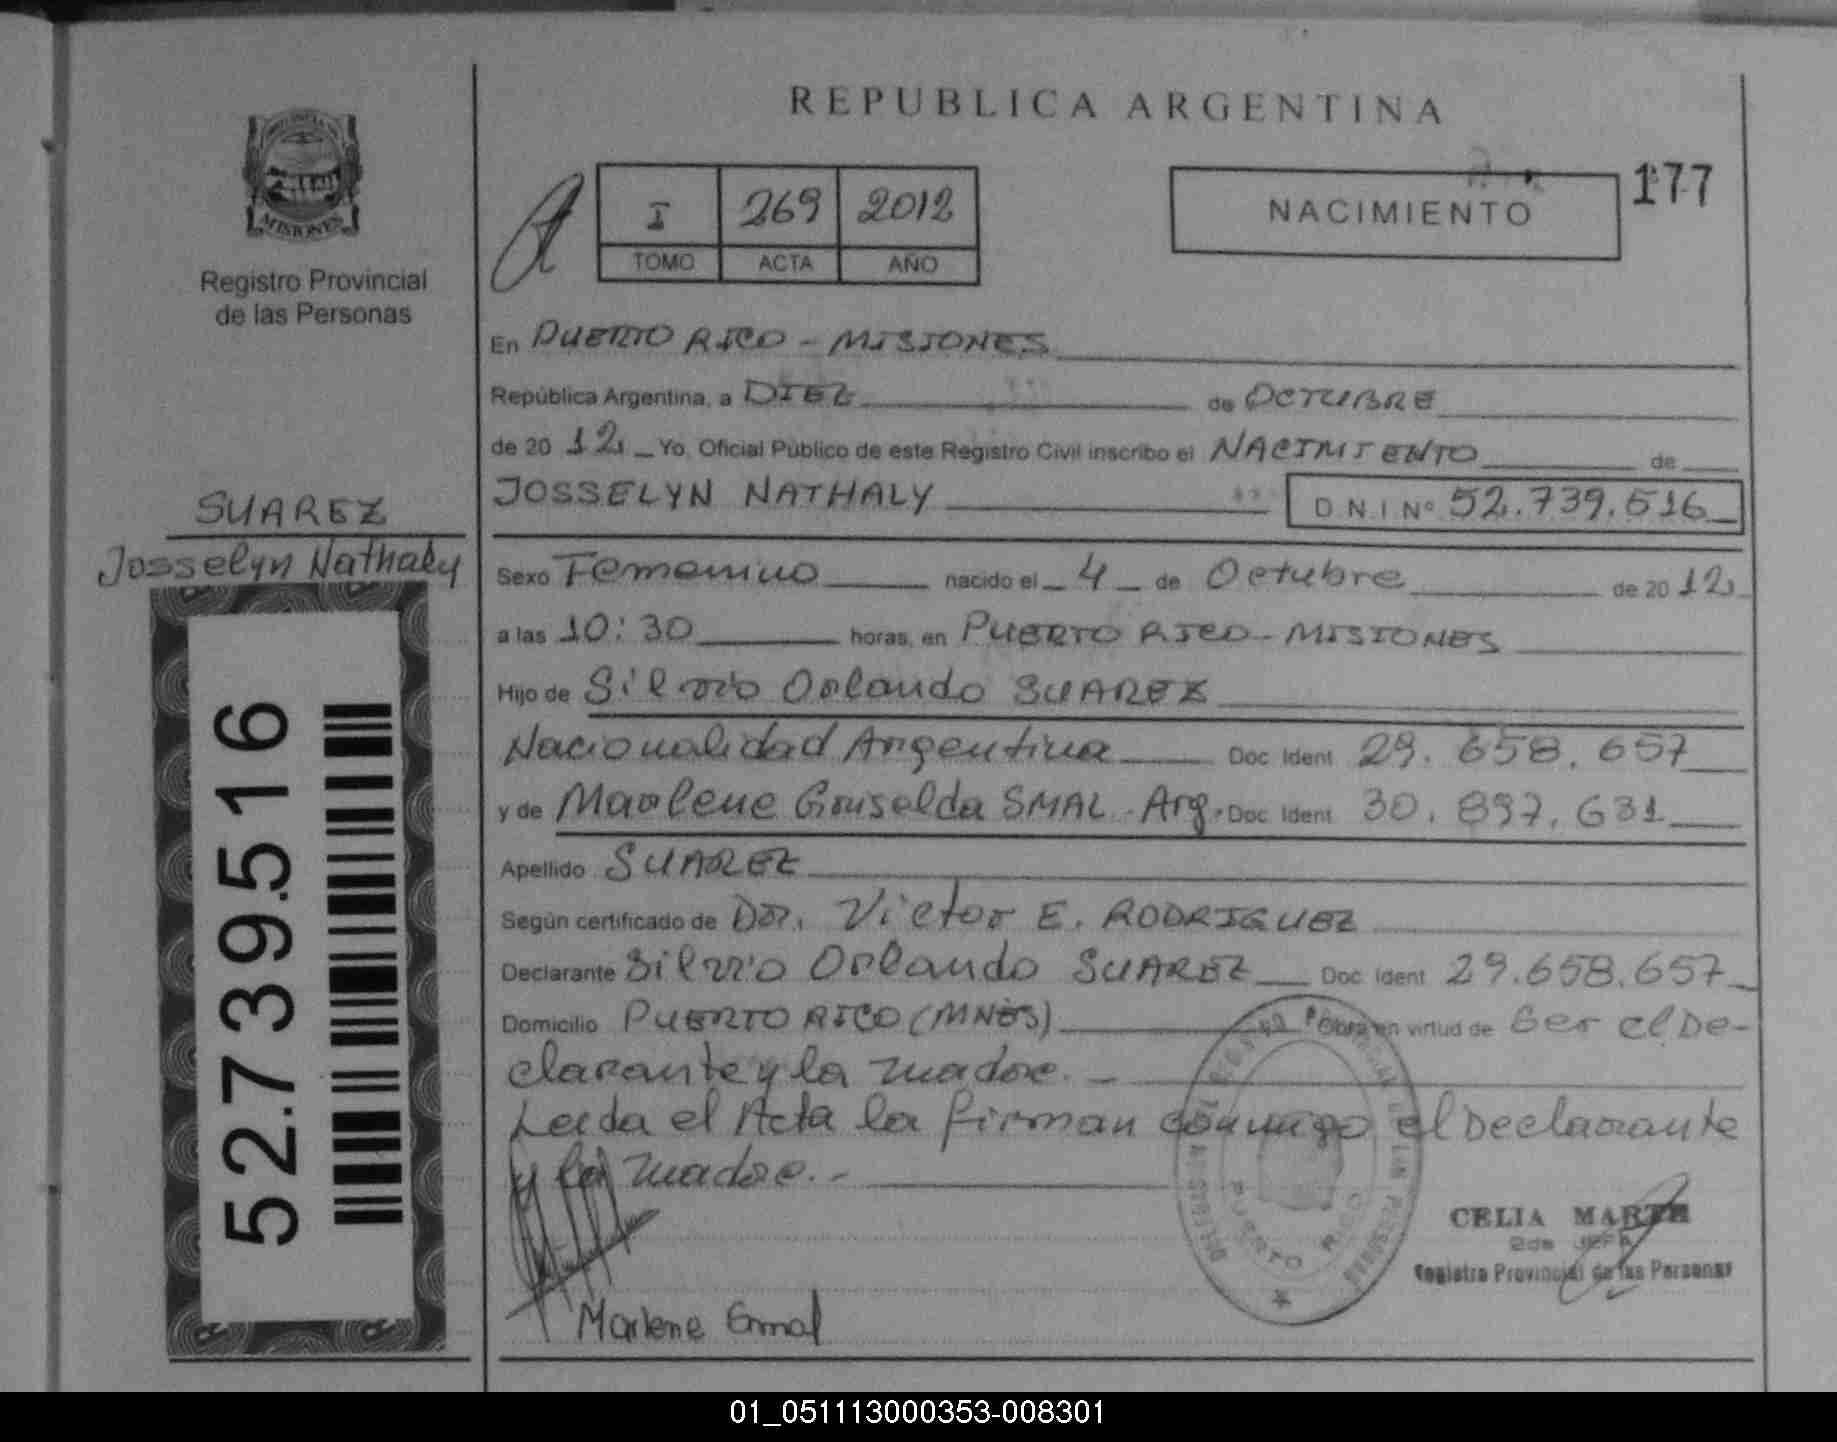 REPUBLICA ARGENTINA
MISIONES
Registro Provincial
de las Personas
I 269 2012
TOMO ACTA AÑO
NACIMIENTO
177
En PUERTO RICO - MISIONES
República Argentina, a DIEZ de OCTUBRE
de 20 12 Yo, Oficial Público de este Registro Civil inscribo el NACIMIENTO de
JOSSELYN NATHALY D.N.I Nº 52.739.516
SUAREZ
Josselyn Nathaly
52.739.516
Sexo Femenino nacido el 4 de Octubre de 20 12
a las 10:30 horas, en PUERTO RICO - MISIONES
Hijo de Silvio Orlando SUAREZ
Nacionalidad Argentina Doc Ident 29.658.657
y de Marlene Griselda SMAL - Arg. Doc Ident 30.897.631
Apellido SUAREZ
Según certificado de Dr. Victor E. RODRIGUEZ
Declarante Silvio Orlando SUAREZ Doc Ident 29.658.657
Domicilio PUERTO RICO (MNES) Obra en virtud de Ser el De-
clarante y la madre. -
Leida el Acta la firman conmigo el Declarante
y la madre. -
PUERTO RICO
CELIA
2da JEFA
Registro Provincial de las Personas
Marlene Smal
01_051113000353-008301